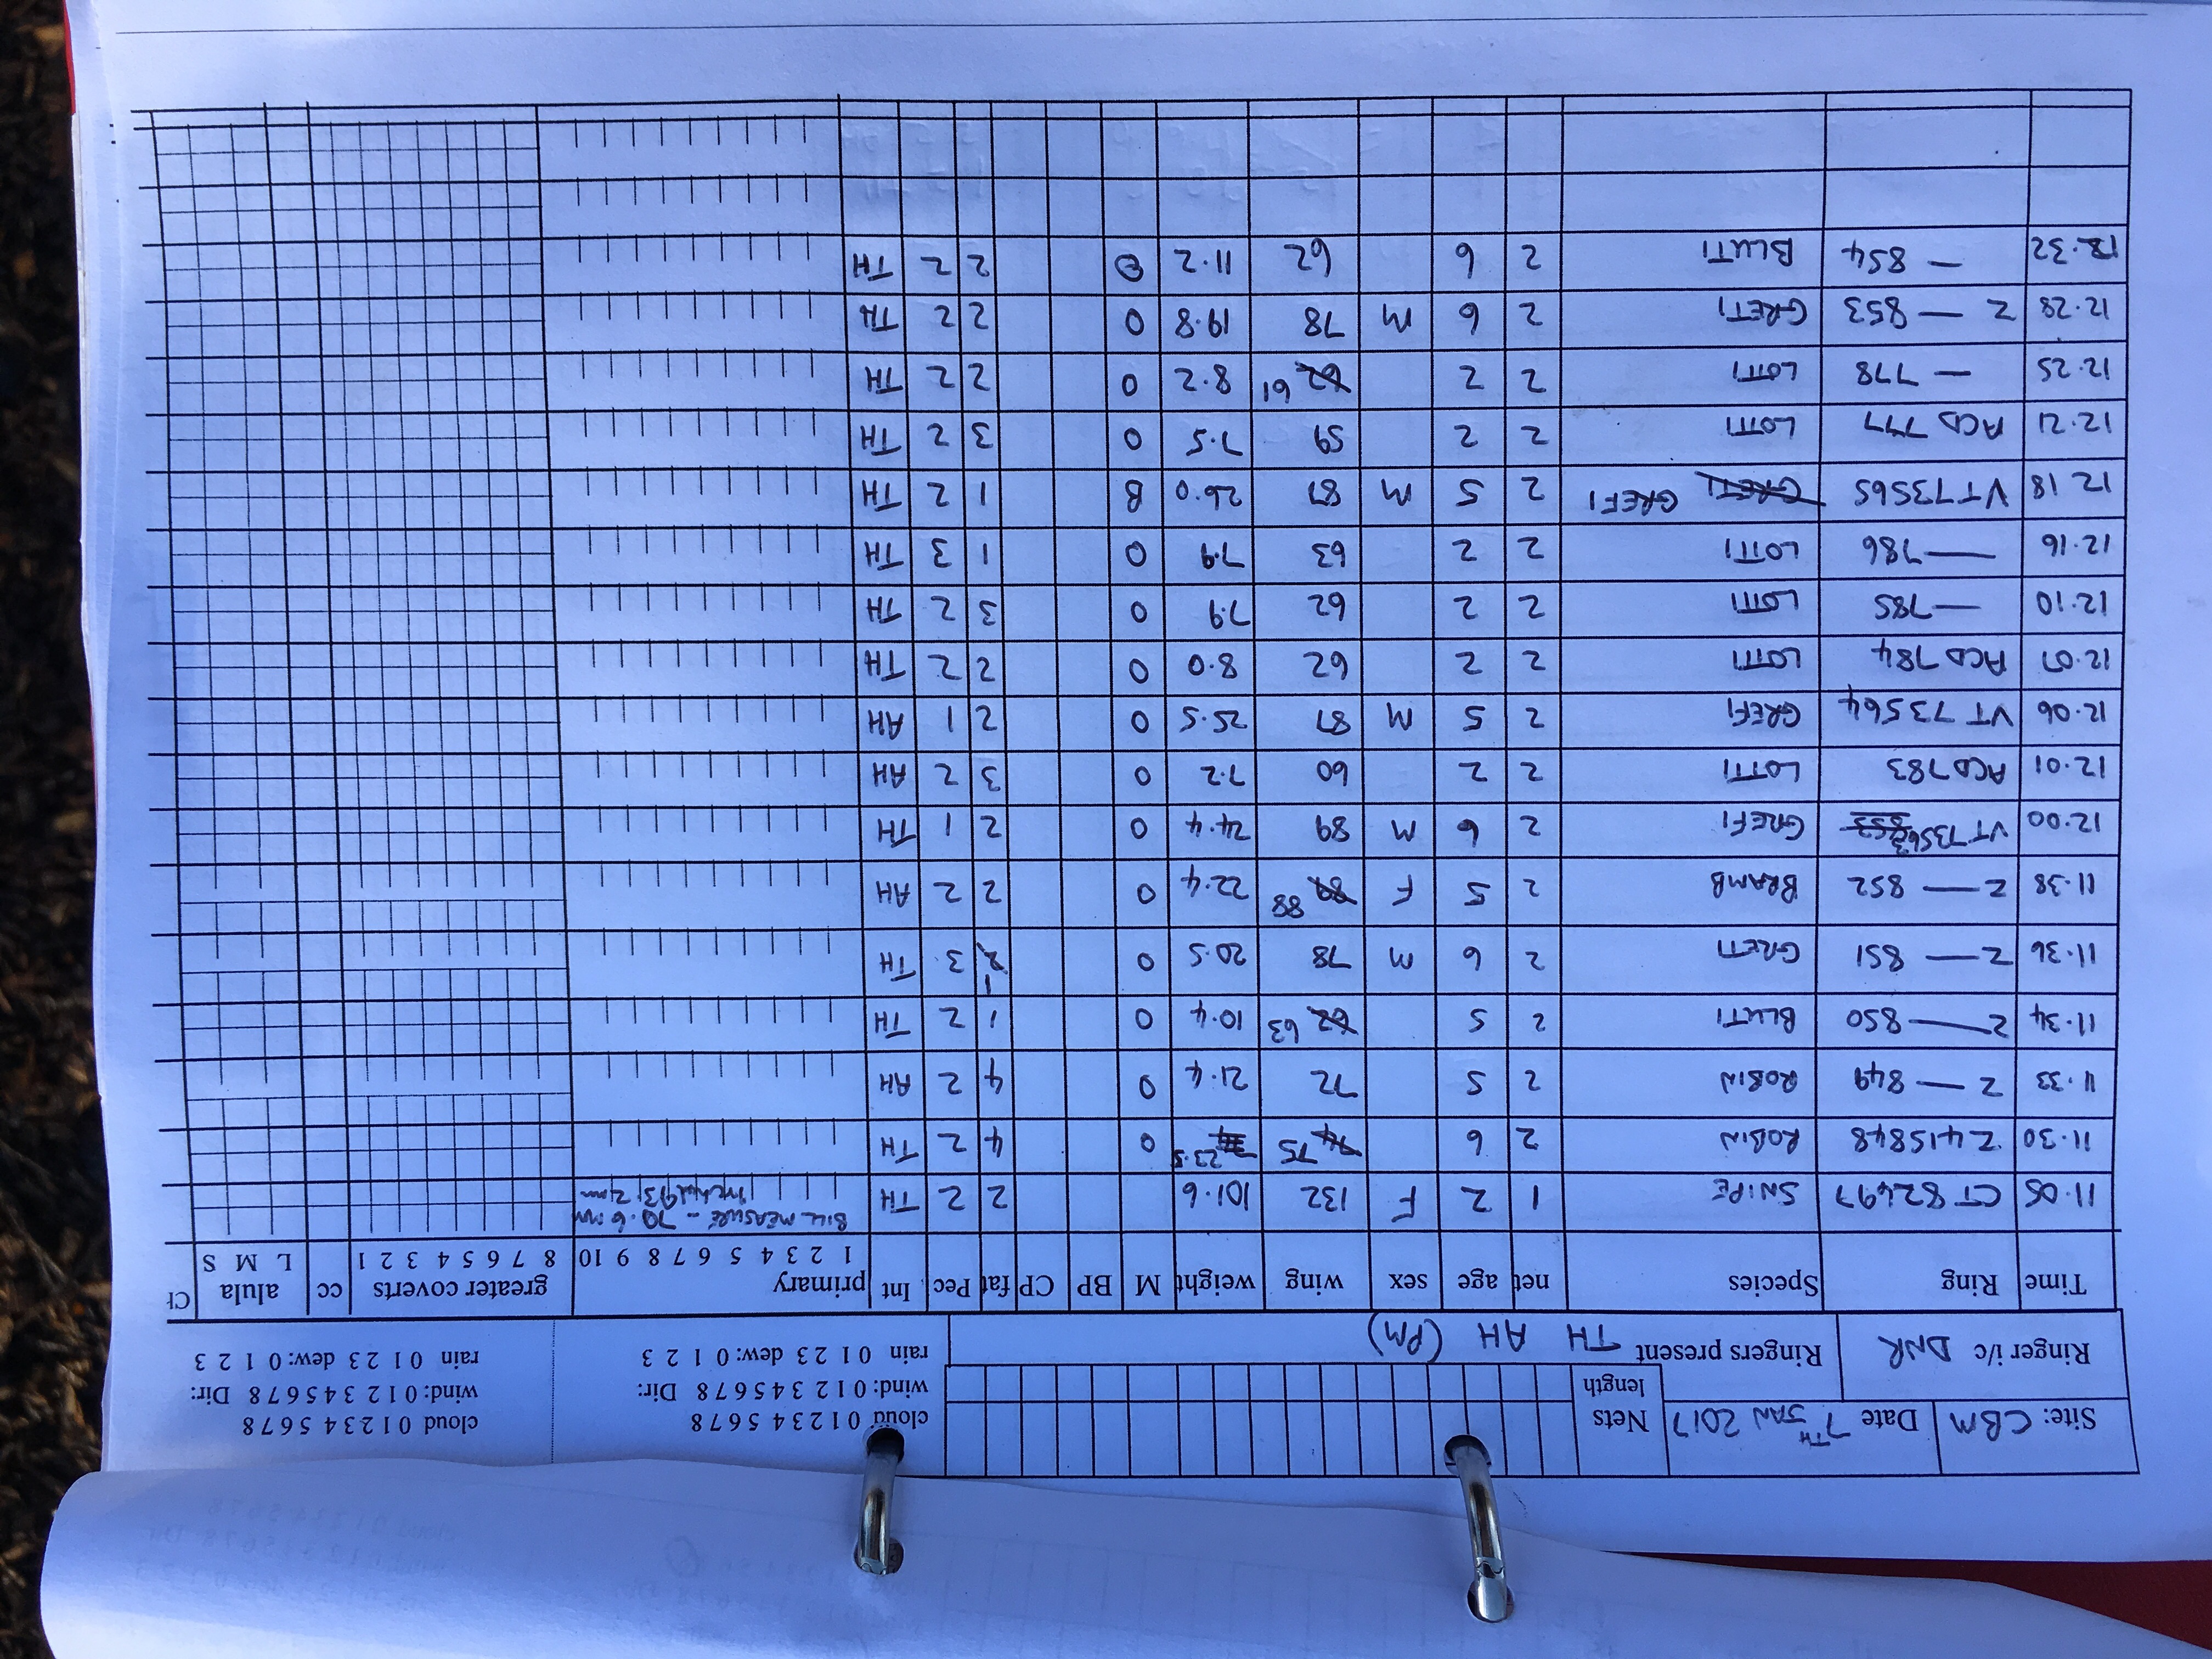 Site: CBM Date 7TH JAN 2017 Nets length cloud 0 1 2 3 4 5 6 7 8 cloud 0 1 2 3 4 5 6 7 8
wind: 0 1 2 3 4 5 6 7 8 Dir: wind: 0 1 2 3 4 5 6 7 8 Dir:
Ringer i/c DNR Ringers present TH AH (PM) rain 0 1 2 3 dew: 0 1 2 3 rain 0 1 2 3 dew: 0 1 2 3
Time Ring Species net age sex wing weight M BP CP fat Pec Int primary greater coverts cc alula
1 2 3 4 5 6 7 8 9 10 8 7 6 5 4 3 2 1 L M S
11.05 CT82497 SNIPE 1 2 F 132 101.6 2 2 TH BILL MEASURE - 70.6 mm
11.30 Z415848 ROBIN 2 6 74 75 23.5 0 4 2 TH
11.33 Z — 849 ROBIN 2 5 72 21.4 0 4 2 AH
11.34 Z — 850 BLUTI 2 5 62 63 10.4 0 1 2 TH
11.36 Z — 851 GRETI 2 6 M 78 20.5 0 2 1 3 TH
11.38 Z — 852 BRAMB 2 5 F 89 88 22.4 0 2 2 AH
12.00 VT73563 853 GREFI 2 6 M 89 24.4 0 2 1 TH
12.01 ACD783 LOTTI 2 2 60 7.2 0 3 2 AH
12.06 VT73564 GREFI 2 5 M 87 25.5 0 2 1 AH
12.07 ACD784 LOTTI 2 2 62 8.0 0 2 2 TH
12.10 — 785 LOTTI 2 2 62 7.9 0 3 2 TH
12.16 — 786 LOTTI 2 2 63 7.9 0 1 3 TH
12.18 VT73565 GRETI GREFI 2 5 M 87 26.0 B 1 2 TH
12.21 ACD777 LOTTI 2 2 59 7.5 0 3 2 TH
12.25 — 778 LOTTI 2 2 62 61 8.2 0 2 2 TH
12.28 Z — 853 GRETI 2 6 M 78 19.8 0 2 2 TH
12.32 — 854 BLUTI 2 6 62 11.2 0 2 2 TH